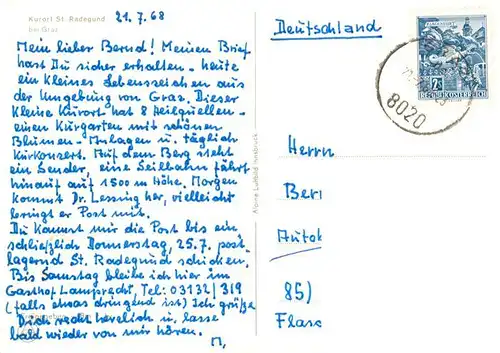 Kurort St. Radegund
bei Graz
21. 7. 68
Mein lieber Bernd! Meinen Brief
hast Du sicher erhalten - heute
ein kleines Lebenszeichen aus
der Umgebung von Graz. Dieser
kleine Kurort hat 8 Heilquellen -
einen Kurgarten mit schönen
Blumen - Anlagen u. täglich
Kurkonzert. Auf dem Berg steht
ein Sender, eine Seilbahn fährt
hinauf auf 1500 m Höhe. Morgen
kommt Dr. Lessing her, vielleicht
bringt er Post mit.
Du kannst mir die Post bis ein-
schließlich Donnerstag, 25.7. post-
lagernd St. Radegund schicken.
Bis Samstag bleibe ich hier im
Gasthof Lamprecht, Tel: 03132/319
(falls etwas dringend ist) Ich grüße
Dich recht herzlich u. lasse
bald wieder von mir hören.
M,
Alpine Luftbild Innsbruck
Deutschland
REPUBLIK ÖSTERREICH
8020
Herrn
Ber
Autok
85)
Flasc